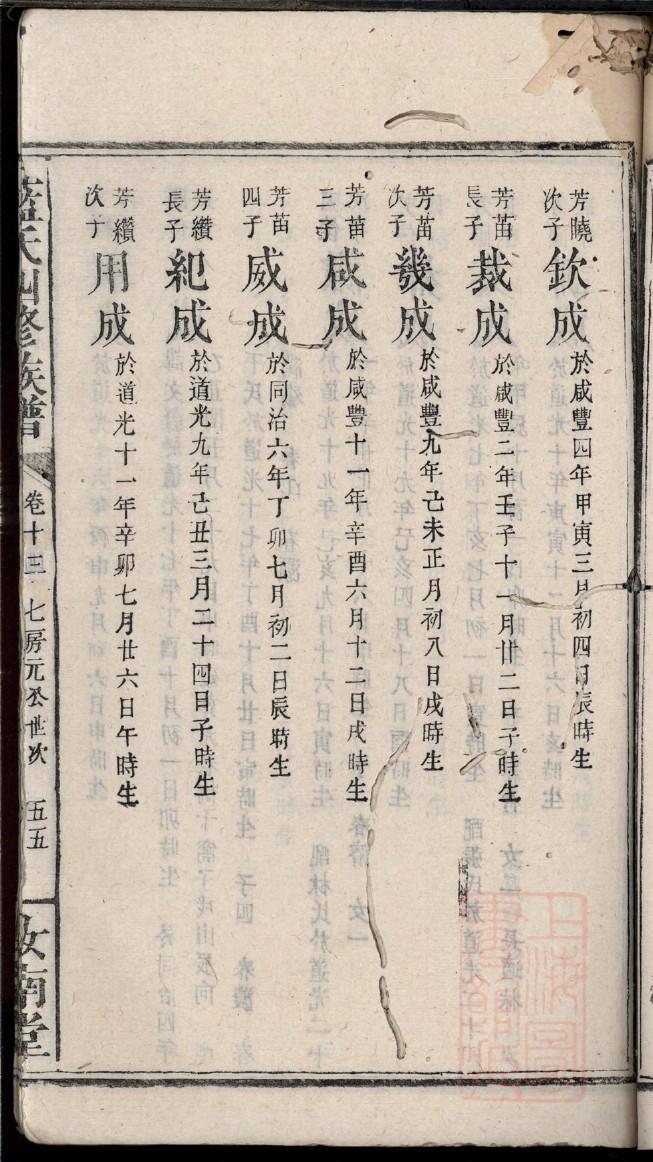 芳曉次子 欽成 於咸豐四年甲寅三月初四日辰時生
芳苗長子 裁成 於咸豐二年壬子十一月廿二日子時生
芳苗次子 幾成 於咸豐九年己未正月初八日戌時生
芳苗三子 成 於咸豐十一年辛酉六月十二日戌時生
芳苗四子 威成 於同治六年丁卯七月初二日辰時生
芳纘長子 紀成 於道光九年己丑三月二十四日子時生
芳纘次子 用成 於道光十一年辛卯七月廿六日午時生
藍氏四修族譜 卷十三 七房元公世次 五五 汝南堂